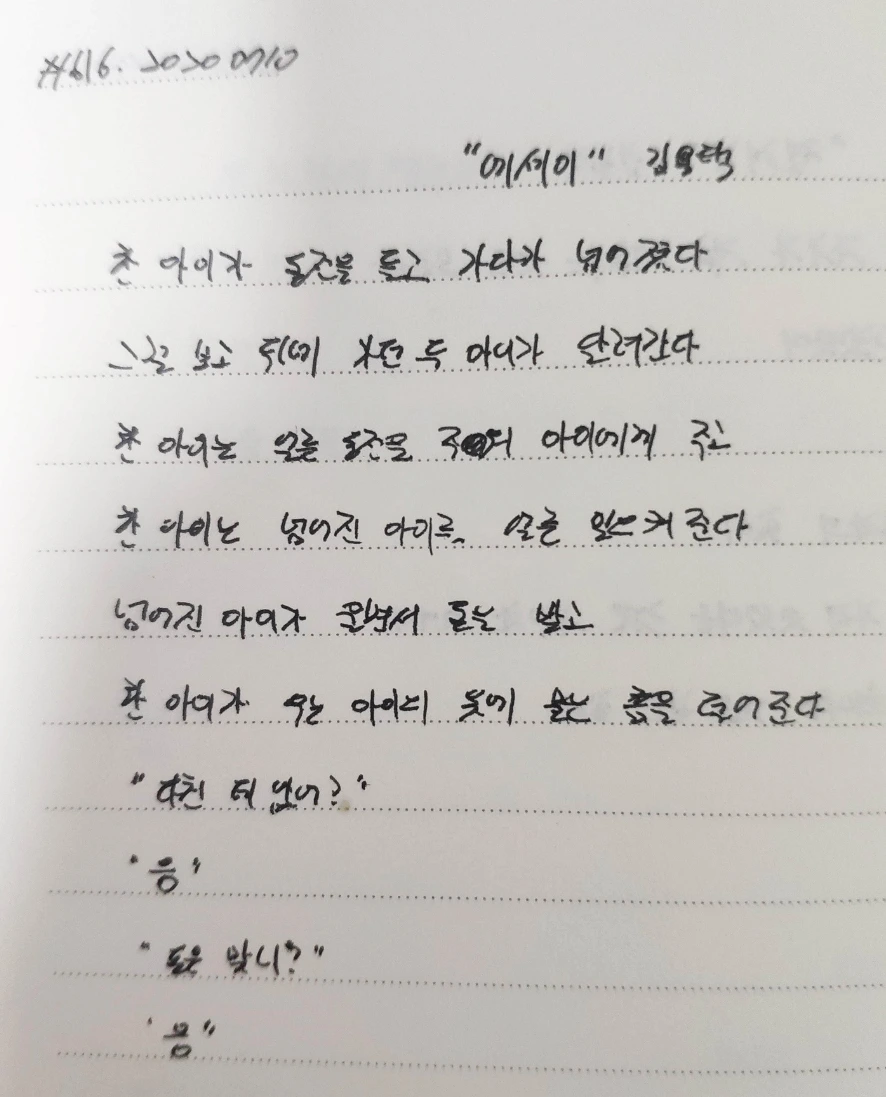 #616. 20200710
"에세이" 김용택
한 아이가 동전을 들고 가다가 넘어졌다
그걸 보고 뒤에 가던 두 아이가 달려간다
한 아이는 얼른 동전을 주워 아이에게 주고
한 아이는 넘어진 아이를 얼른 일으켜 준다
넘어진 아이가 울면서 돈을 받고
한 아이가 우는 아이의 옷에 묻은 흙을 털어준다
"다친 데 없어?"
"응"
"돈은 맞니?"
"응"